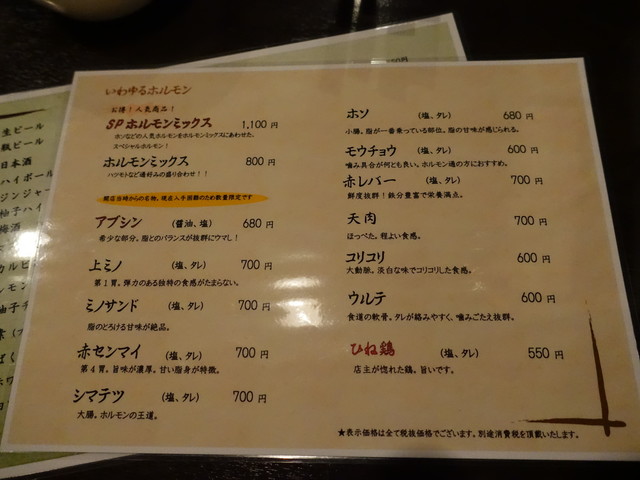 いわゆるホルモン
お得！人気商品！
SPホルモンミックス 1,100 円
ホソなどの人気ホルモンをホルモンミックスにあわせた、
スペシャルホルモン！
ホルモンミックス 800 円
ハツモトなど通好みの盛り合わせ！！
開店当時からの名物。現在入手困難のため数量限定です
アブシン (醤油、塩) 680 円
希少な部分。脂とのバランスが抜群にウマし！
上ミノ (塩、タレ) 700 円
第1胃。弾力のある独特の食感がたまらない。
ミノサンド (塩、タレ) 700 円
脂のとろける甘味が絶品。
赤センマイ (塩、タレ) 700 円
第4胃。旨味が濃厚。甘い脂身が特徴。
シマテツ (塩、タレ) 700 円
大腸。ホルモンの王道。
ホソ (塩、タレ) 680 円
小腸。脂が一番乗っている部位。脂の甘味が感じられる。
モウチョウ (塩、タレ) 600 円
噛み具合が何とも良い。ホルモン通の方におすすめ。
赤レバー (塩、タレ) 700 円
鮮度抜群！鉄分豊富で栄養満点。
天肉 700 円
ほっぺた。程よい食感。
コリコリ (塩、タレ) 600 円
大動脈。淡白な味でコリコリした食感。
ウルテ 600 円
食道の軟骨。タレが絡みやすく、噛みごたえ抜群。
ひね鶏 (塩、タレ) 550 円
店主が惚れた鶏。旨いです。
★表示価格は全て税抜価格でございます。別途消費税を頂戴いたします。
生ビール
瓶ビール
日本酒
ハイボール
ジンジャー
柚子ハイ
梅酒